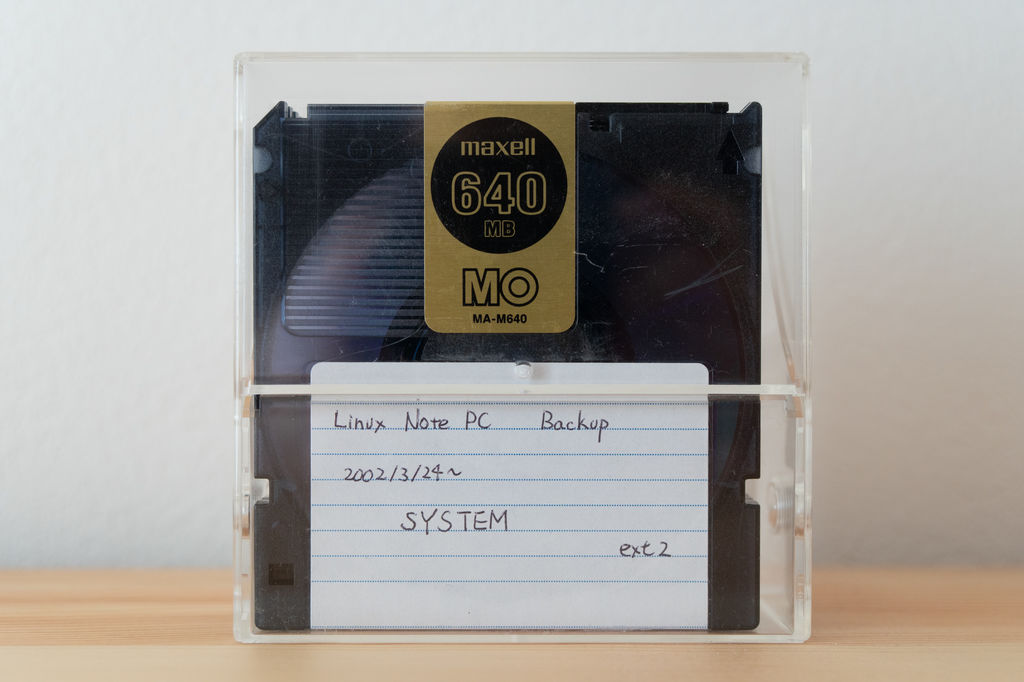 maxell
640
MB
MO
MA-M640
Linux Note PC Backup
2002/3/24~
SYSTEM
ext2